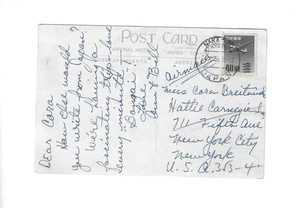 POST CARD
Dear Cora
How else would
you write from Japan?
We're having a
fascinating trip, love
every minute
Sayonara
Love
and Bill
airmail
Miss Cora
Hattie Carnegie
711 Fifth Ave
New York City
New York
U.S.A.
JAPAN